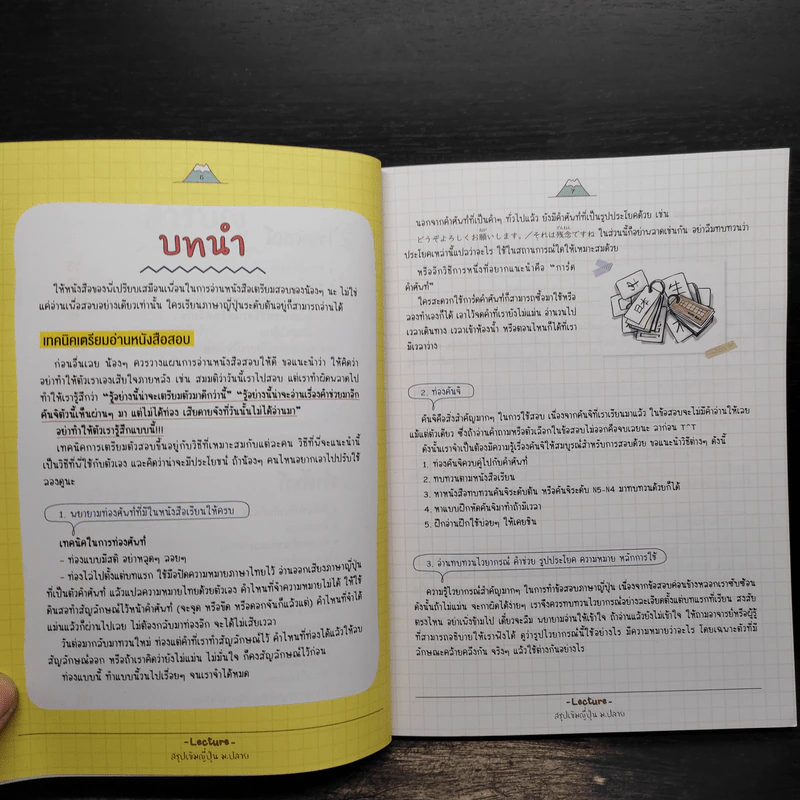 6
บทนำ
ให้หนังสือของพี่เปรียบเสมือนเพื่อนในการอ่านหนังสือเตรียมสอบของน้องๆ นะ ไม่ใช่
แค่อ่านเพื่อสอบอย่างเดียวเท่านั้น ใครเรียนภาษาญี่ปุ่นระดับต้นอยู่ก็สามารถอ่านได้
เทคนิคเตรียมอ่านหนังสือสอบ
ก่อนอื่นเลย น้องๆ ควรวางแผนการอ่านหนังสือสอบให้ดี ขอแนะนำว่า ให้คิดว่า
อย่าทำให้ตัวเราเองเสียใจภายหลัง เช่น สมมติว่าวันนี้เราไปสอบ แต่เราทำผิดพลาดไป
ทำให้เรารู้สึกว่า “รู้อย่างนี้น่าจะเตรียมตัวมาดีกว่านี้” “รู้อย่างนี้น่าจะอ่านเรื่องคำช่วยมาอีก
คันจิตัวนี้เห็นผ่านๆ มา แต่ไม่ได้ท่อง เสียดายจังที่วันนั้นไม่ได้อ่านมา”
อย่าทำให้ตัวเรารู้สึกแบบนี้!!!
เทคนิคการเตรียมตัวสอบขึ้นอยู่กับวิธีที่เหมาะสมกับแต่ละคน วิธีที่พี่จะแนะนำนี้
เป็นวิธีที่พี่ใช้กับตัวเอง และคิดว่าน่าจะมีประโยชน์ ถ้าน้องๆ คนไหนอยากเอาไปปรับใช้
ลองดูนะ
1. พยายามท่องศัพท์ที่มีในหนังสือเรียนให้ครบ
เทคนิคในการท่องศัพท์
- ท่องแบบมีสติ อย่าหลุดๆ ลอยๆ
- ท่องไล่ไปตั้งแต่บทแรก ใช้มือปิดความหมายภาษาไทยไว้ อ่านออกเสียงภาษาญี่ปุ่น
ที่เป็นตัวคำศัพท์ แล้วแปลความหมายไทยด้วยตัวเอง คำไหนที่จำความหมายไม่ได้ ให้ใช้
ดินสอทำสัญลักษณ์ไว้หน้าคำศัพท์ (จะจุด หรือขีด หรือดอกจันก็แล้วแต่) คำไหนที่จำได้
แม่นแล้วก็ผ่านไปเลย ไม่ต้องกลับมาท่องอีก จะได้ไม่เสียเวลา
วันต่อมากลับมาทวนใหม่ ท่องแต่คำที่เราทำสัญลักษณ์ไว้ คำไหนที่ท่องได้แล้วให้ลบ
สัญลักษณ์ออก หรือถ้าเราคิดว่ายังไม่แม่น ไม่มั่นใจ ก็คงสัญลักษณ์ไว้ก่อน
ท่องแบบนี้ ทำแบบนี้วนไปเรื่อยๆ จนเราจำได้หมด
-Lecture-
สรุปเข้มญี่ปุ่น ม.ปลาย
7
นอกจากคำศัพท์ที่เป็นคำๆ ทั่วไปแล้ว ยังมีคำศัพท์ที่เป็นรูปประโยคด้วย เช่น
どうぞよろしくお願いします。／それは残念ですね ในส่วนนี้ก็อย่าพลาดเช่นกัน อย่าลืมทบทวนว่า
ประโยคเหล่านี้แปลว่าอะไร ใช้ในสถานการณ์ใดให้เหมาะสมด้วย
หรืออีกวิธีการหนึ่งที่อยากแนะนำคือ “การ์ด
คำศัพท์”
ใครสะดวกใช้การ์ดคำศัพท์ก็สามารถซื้อมาใช้หรือ
ลองทำเองก็ได้ เอาไว้จดคำที่เรายังไม่แม่น อ่านวนไป
เวลาเดินทาง เวลาเข้าห้องน้ำ หรือตอนไหนก็ได้ที่เรา
มีเวลาว่าง
2. ท่องคันจิ
คันจิคือสิ่งสำคัญมากๆ ในการใช้สอบ เนื่องจากคันจิที่เราเรียนมาแล้ว ในข้อสอบจะไม่มีคำอ่านให้เลย
แม้แต่ตัวเดียว ซึ่งถ้าอ่านคำถามหรือตัวเลือกในข้อสอบไม่ออกคือจบเลยนะ ลาก่อน T^T
ดังนั้นเราจำเป็นต้องมีความรู้เรื่องคันจิให้สมบูรณ์สำหรับการสอบด้วย ขอแนะนำวิธีต่างๆ ดังนี้
1. ท่องคันจิควบคู่ไปกับคำศัพท์
2. ทบทวนตามหนังสือเรียน
3. หาหนังสือทบทวนคันจิระดับต้น หรือคันจิระดับ N5-N4 มาทบทวนด้วยก็ได้
4. หาแบบฝึกหัดคันจิมาทำถ้ามีเวลา
5. ฝึกอ่านฝึกใช้บ่อยๆ ให้เคยชิน
3. อ่านทบทวนไวยากรณ์ คำช่วย รูปประโยค ความหมาย หลักการใช้
ความรู้ไวยากรณ์สำคัญมากๆ ในการทำข้อสอบภาษาญี่ปุ่น เนื่องจากข้อสอบค่อนข้างหลอกเราซับซ้อน
ดังนั้นถ้าไม่แม่น จะกาผิดได้ง่ายๆ เราจึงควรทบทวนไวยากรณ์อย่างละเอียดตั้งแต่บทแรกที่เรียน สงสัย
ตรงไหน อย่าเพิ่งข้ามไป เดี๋ยวจะลืม พยายามอ่านให้เข้าใจ ถ้าอ่านแล้วยังไม่เข้าใจ ให้ถามอาจารย์หรือผู้รู้
ที่สามารถอธิบายให้เราฟังได้ ดูว่ารูปไวยากรณ์นี้ใช้อย่างไร มีความหมายว่าอะไร โดยเฉพาะตัวที่มี
ลักษณะคล้ายคลึงกัน จริงๆ แล้วใช้ต่างกันอย่างไร
-Lecture-
สรุปเข้มญี่ปุ่น ม.ปลาย